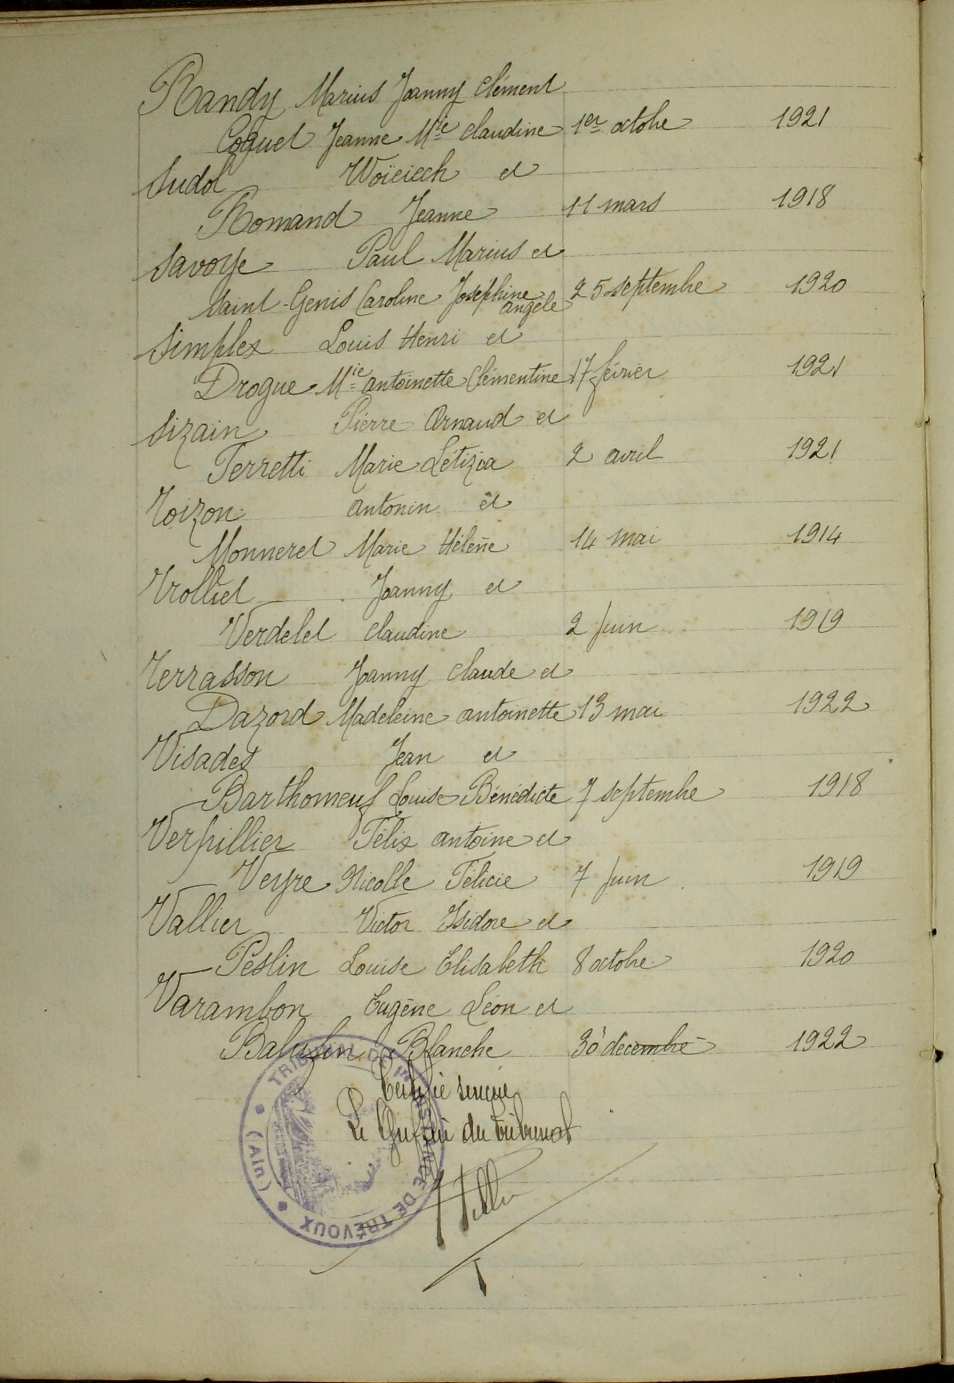 Randy Marius Joanny Clément
Coquet Jeanne Mie Claudine 1er octobre 1921
Sudol Woïciech et
Romand Jeanne 11 mars 1918
Savoye Paul Marius et
Saint-Genis Caroline Josephine angèle 25 septembre 1920
Simplex Louis Henri et
Drogue Mie antoinette Clémentine 17 février 1921
Sizain Pierre Arnaud et
Ferretti Marie Letizia 2 avril 1921
Toizon antonin et
Monneret Marie Hélène 14 mai 1914
Trolliet Joanny et
Verdelet Claudine 2 Juin 1919
Terrasson Joanny Claude et
Dazord Madeleine antoinette 13 mai 1922
Visades Jean et
Barthomeuf Louise Bénédicte 7 septembre 1918
Verpillier Félix antoine et
Veyre Nicolle Félicie 7 Juin 1919
Vallier Victor Isidore et
Peslin Louise Elisabeth 8 octobre 1920
Varambon Eugène Léon et
Blanche 30 décembre 1922
Certifié sincère
Le Greffier du Tribunal
TRIBUNAL DE 1ère INSTANCE DE TRÉVOUX
(Ain)